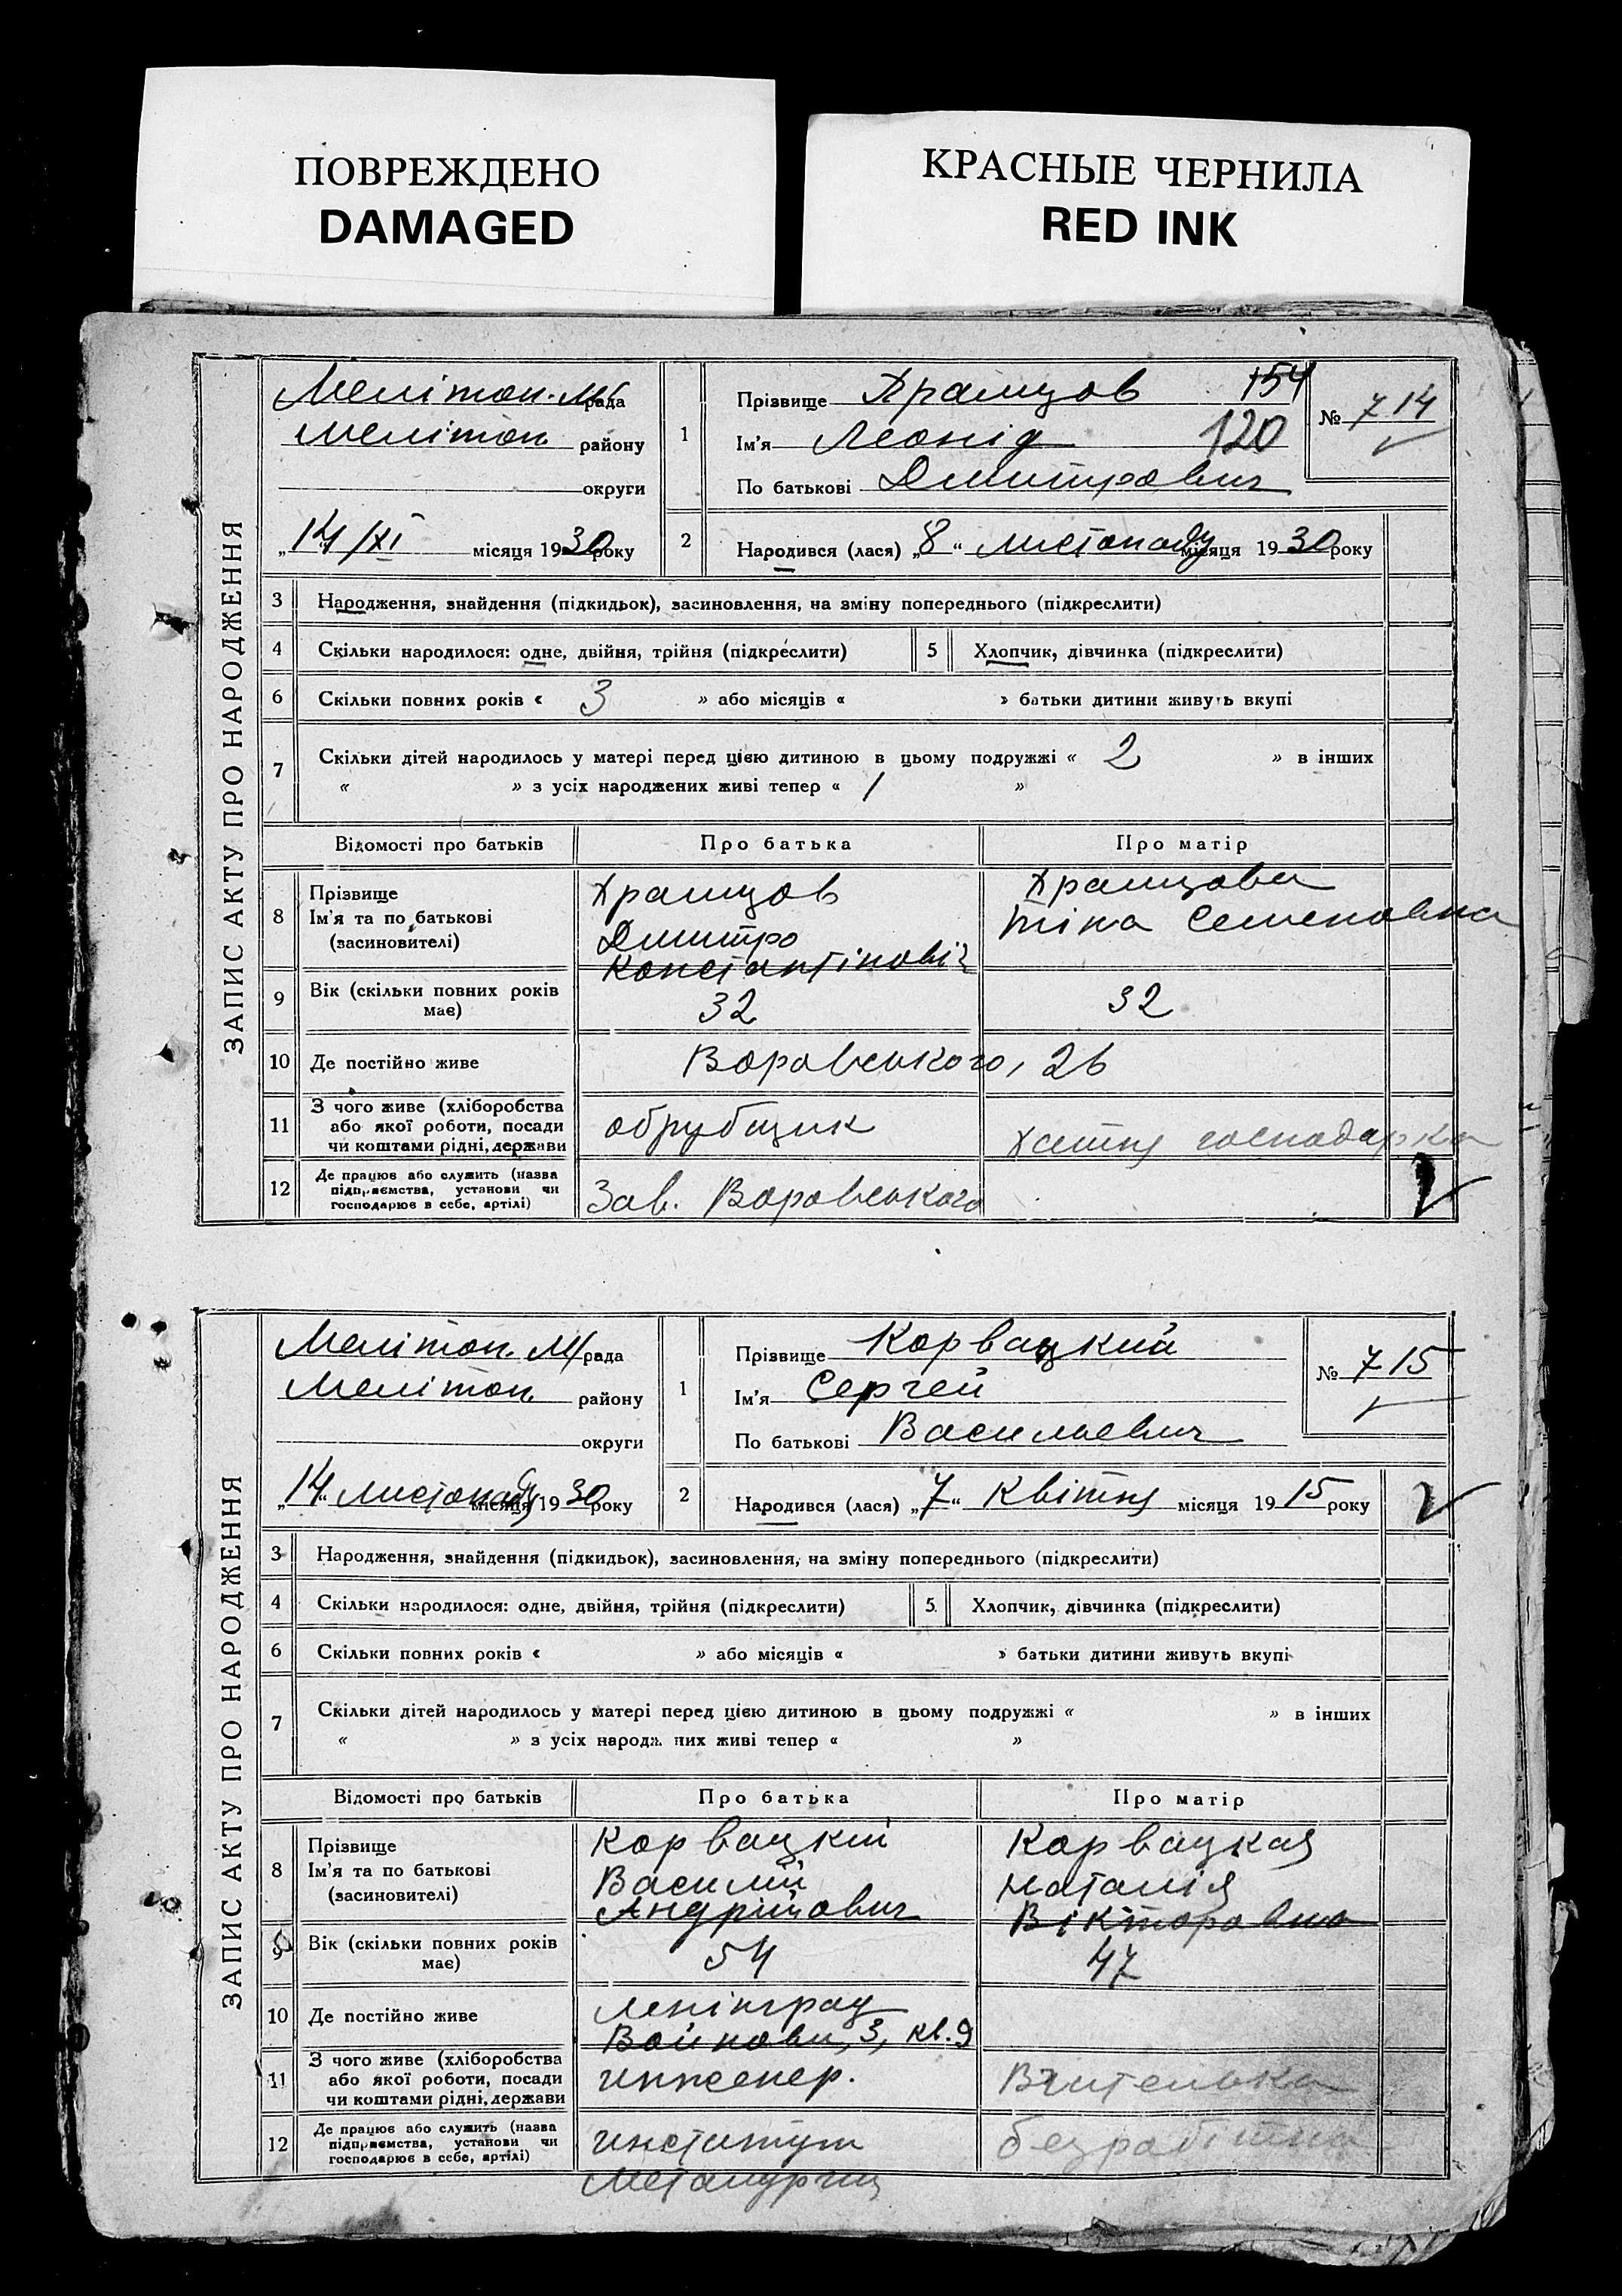 ПОВРЕЖДЕНО
DAMAGED
КРАСНЫЕ ЧЕРНИЛА
RED INK
ЗАПИС АКТУ ПРО НАРОДЖЕННЯ
Мелітоп. М/рада
Мелітоп району
округи
„14/XI місяця 1930 року
1
Прізвище Храмцов 154
Ім'я Леонід 120
По батькові Дмитрович
№ 714
2
Народився (лася) „8“ листопаду місяця 1930 року
3 Народження, знайдення (підкидьок), засиновлення, на зміну попереднього (підкреслити)
4 Скільки народилося: одне, двійня, трійня (підкреслити) 5 Хлопчик, дівчинка (підкреслити)
6 Скільки повних років « 3 » або місяців « » батьки дитини живуть вкупі
7 Скільки дітей народилось у матері перед цією дитиною в цьому подружжі « 2 » в інших
« » з усіх народжених живі тепер « 1 »
Відомості про батьків Про батька Про матір
8 Прізвище
Ім'я та по батькові
(засиновителі)
Храмцов
Дмитро
Константіновіч
Храмцова
Семеновна
9 Вік (скільки повних років має) 32 32
10 Де постійно живе Воровського, 26
11 З чого живе (хліборобства
або якої роботи, посади
чи коштами рідні, держави
обрубщик хатня господарка
12 Де працює або служить (назва
підприємства, установи чи
господарює в себе, артілі)
Зав. Воровського
ЗАПИС АКТУ ПРО НАРОДЖЕННЯ
Мелітоп. М/рада
Мелітоп району
округи
„14“ листопаду місяця 1930 року
1
Прізвище Корвацкий
Ім'я Сергей
По батькові Васильевич
№ 715
2
Народився (лася) „7“ Квітня місяця 1915 року
3 Народження, знайдення (підкидьок), засиновлення, на зміну попереднього (підкреслити)
4 Скільки народилося: одне, двійня, трійня (підкреслити) 5. Хлопчик, дівчинка (підкреслити)
6 Скільки повних років « » або місяців « » батьки дитини живуть вкупі
7 Скільки дітей народилось у матері перед цією дитиною в цьому подружжі « » в інших
« » з усіх народжених живі тепер « »
Відомості про батьків Про батька Про матір
8 Прізвище
Ім'я та по батькові
(засиновителі)
Корвацкій
Василій
Андрійович
Корвацкая
Наталія
Вікторовна
9 Вік (скільки повних років має) 54 47
10 Де постійно живе Ленінград
Войнова, 3, кв. 9
11 З чого живе (хліборобства
або якої роботи, посади
чи коштами рідні, держави
инженер. Вчителька
12 Де працює або служить (назва
підприємства, установи чи
господарює в себе, артілі)
институт безработна
Металургии